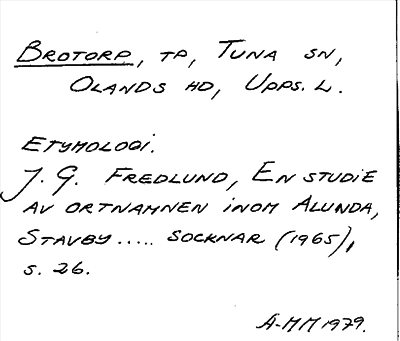 BROTORP, TP, TUNA SN,
OLANDS HD, UPPS. L.
ETYMOLOGI.
J. G. FREDLUND, EN STUDIE
AV ORTNAMNEN INOM ALUNDA,
STAVBY ..... SOCKNAR (1965),
S. 26.
A-MM 1979.